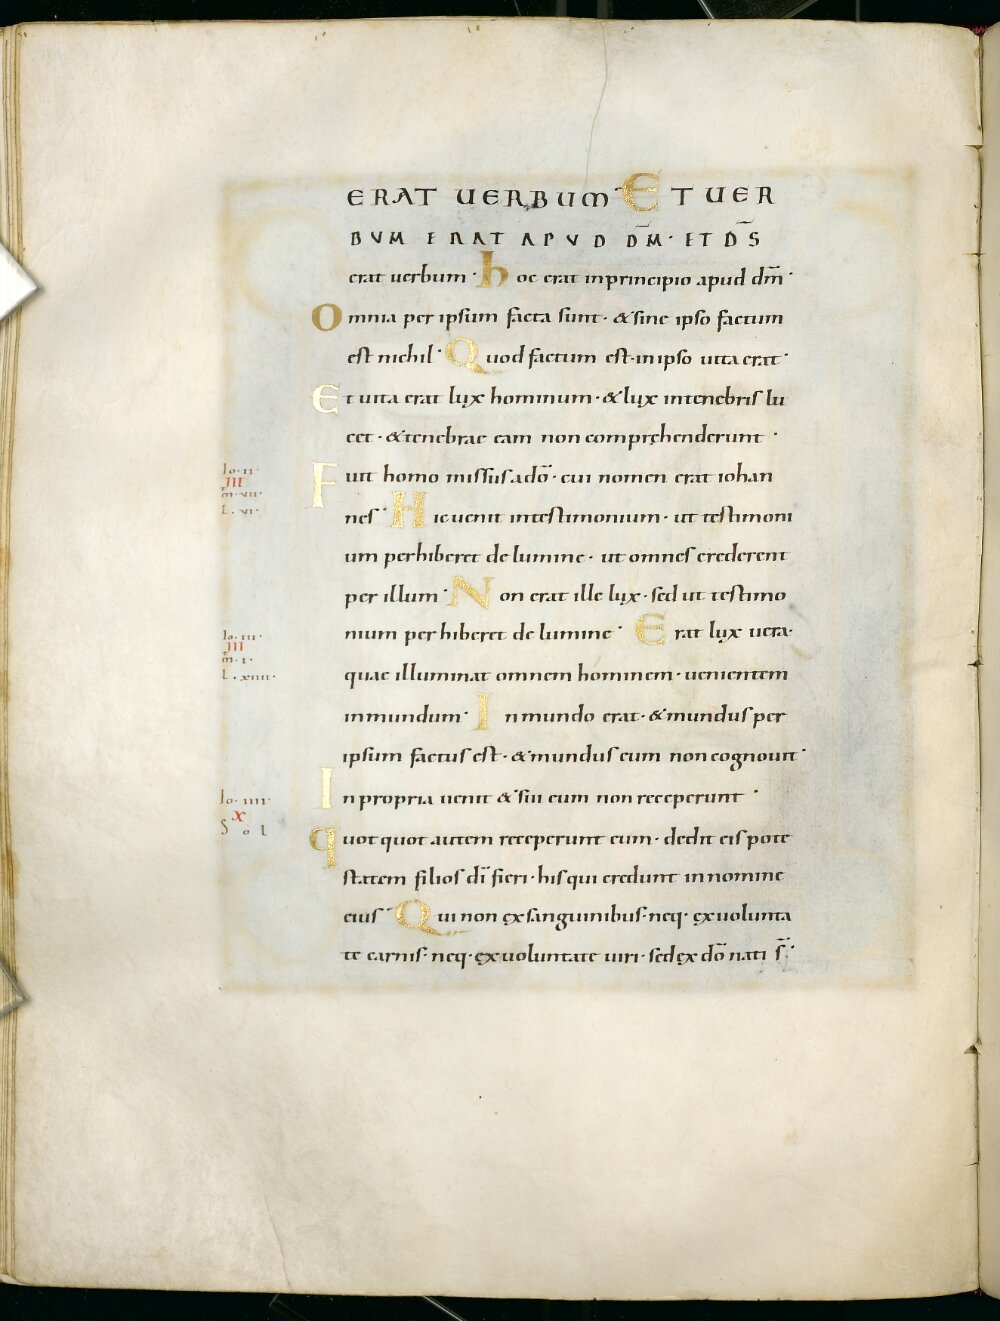 ERAT UERBUM· ET UER
BVM ERAT APVD DM̄· ET DS̄
erat uerbum· hoc erat inprincipio apud dm̄·
Omnia per ipsum facta sunt· & sine ipso factum
est nichil· Quod factum est· in ipso uita erat·
Et uita erat lux hominum· & lux intenebris lu
cet· & tenebrae eam non comprehenderunt·
Fuit homo missus a dō· cui nomen erat iohan
nes· Hic uenit intestimonium· ut testimoni
um perhiberet de lumine· ut omnes crederent
per illum· Non erat ille lux· sed ut testimo
nium perhiberet de lumine· Erat lux uera·
quae illuminat omnem hominem· uenientem
inmundum· In mundo erat· & mundus per
ipsum factus est· & mundus eum non cognouit·
In propria uenit & sui eum non receperunt·
quotquot autem receperunt eum· dedit eis pote
statem filios dī fieri· his qui credunt in nomine
eius· Qui non ex sanguinibus· neq· ex uolunta
te carnis· neq· ex uoluntate uiri· sed ex dō nati s̄·
Io· II·
III
m· VII·
L· VI·
Io· III·
III
m· I·
L· XIIII·
Io· IIII·
X
Sol